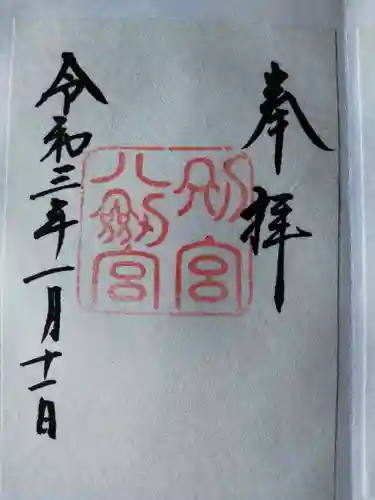 奉拝
別宮
八剱宮
令和三年一月十一日